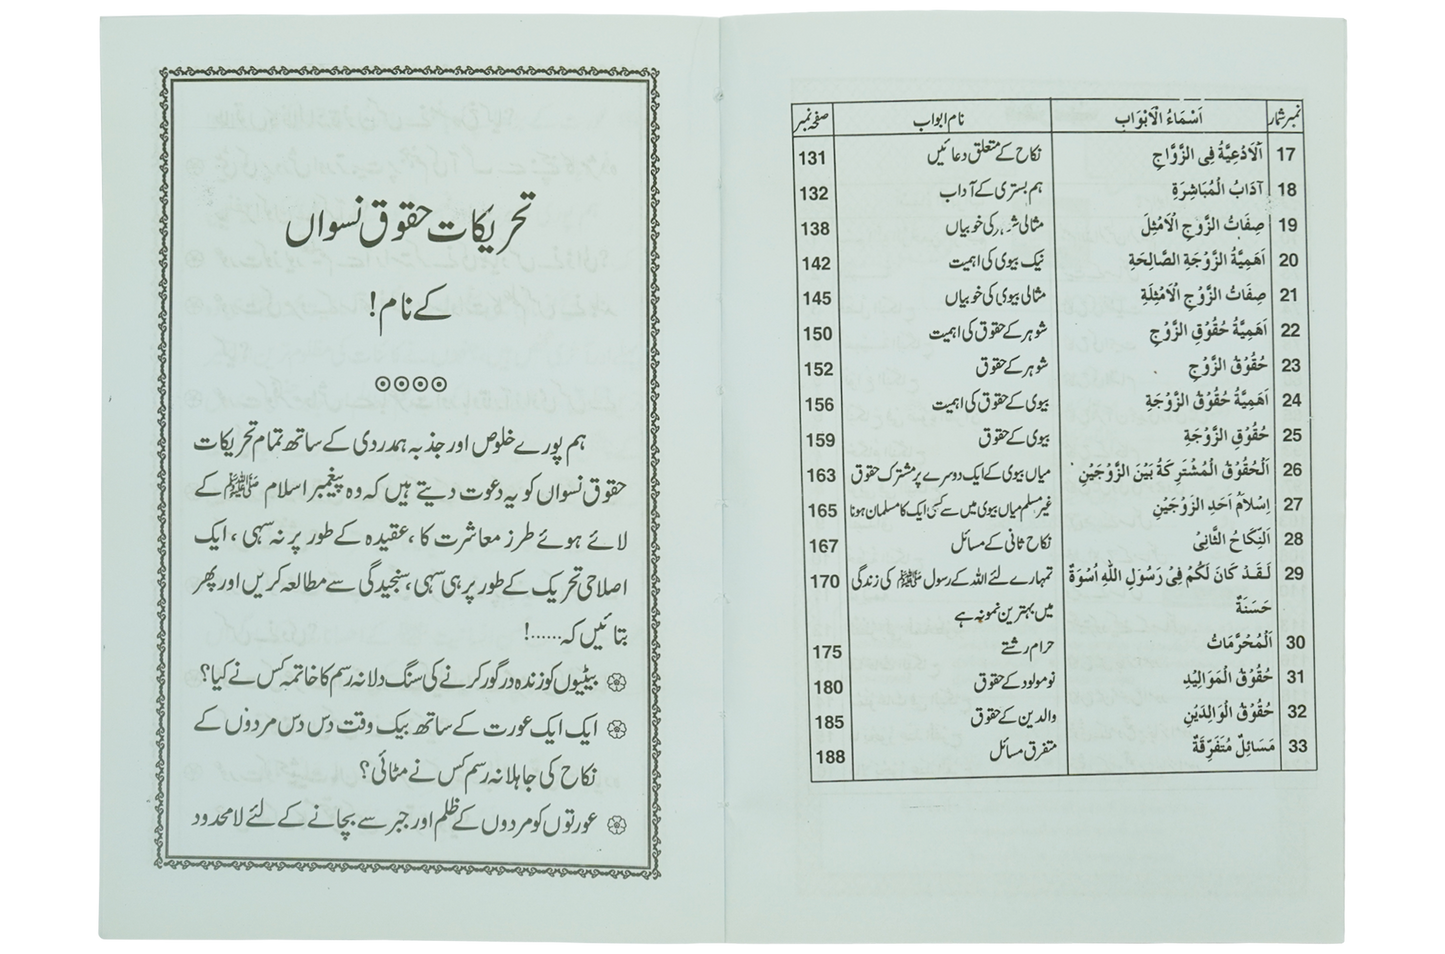 نمبر شمار اَسْمَاءُ الْاَبْوَاب نام ابواب صفحہ نمبر
17 اَلْاَدْعِيَّةُ فِى الزَّوَاجِ نکاح کے متعلق دعائیں 131
18 آدَابُ الْمُبَاشِرَةِ ہم بستری کے آداب 132
19 صِفَاتُ الزَّوْجِ الْاَمْثِلَ مثالی شوہر کی خوبیاں 138
20 اَهَمِيَّةُ الزَّوْجَةِ الصَّالِحَةِ نیک بیوی کی اہمیت 142
21 صِفَاتُ الزَّوْجِ الْاَمْثِلَةِ مثالی بیوی کی خوبیاں 145
22 اَهَمِيَّةُ حُقُوْقِ الزَّوْجِ شوہر کے حقوق کی اہمیت 150
23 حُقُوْقُ الزَّوْجِ شوہر کے حقوق 152
24 اَهَمِيَّةُ حُقُوْقُ الزَّوْجَةِ بیوی کے حقوق کی اہمیت 156
25 حُقُوْقِ الزَّوْجَةِ بیوی کے حقوق 159
26 اَلْحُقُوْقُ الْمُشْتَرِكَةُ بَيْنَ الزَّوْجَيْنِ میاں بیوی کے ایک دوسرے پر مشترک حقوق 163
27 اِسْلَامُ اَحَدِ الزَوْجَيْنِ غیر مسلم میاں بیوی میں سے کسی ایک کا مسلمان ہونا 165
28 اَلنِّكَاحُ الثَّانِىُ نکاح ثانی کے مسائل 167
29 لَقَدْ كَانَ لَكُمْ فِىْ رَسُوْلِ اللّٰهِ اُسْوَةٌ تمہارے لئے اللہ کے رسول ﷺ کی زندگی 170
حَسَنَةٌ میں بہترین نمونہ ہے
30 اَلْمُحَرَّمَاتُ حرام رشتے 175
31 حُقُوْقُ الْمَوَالِيْدِ نومولود کے حقوق 180
32 حُقُوْقُ الْوَالِدَيْنِ والدین کے حقوق 185
33 مَسَائِلٌ مُتَفَرِّقَةٌ متفرق مسائل 188
تحریکات حقوق نسواں
کے نام!
ہم پورے خلوص اور جذبہ ہمدردی کے ساتھ تمام تحریکات
حقوق نسواں کو یہ دعوت دیتے ہیں کہ وہ پیغمبر اسلام ﷺ کے
لائے ہوئے طرز معاشرت کا، عقیدہ کے طور پر نہ سہی، ایک
اصلاحی تحریک کے طور پر ہی سہی، سنجیدگی سے مطالعہ کریں اور پھر
بتائیں کہ.....!
بیٹیوں کو زندہ درگور کرنے کی سنگ دلانہ رسم کا خاتمہ کس نے کیا؟
ایک ایک عورت کے ساتھ بیک وقت دس دس مردوں کے
نکاح کی جاہلانہ رسم کس نے مٹائی؟
عورتوں کو مردوں کے ظلم اور جبر سے بچانے کے لئے لامحدود